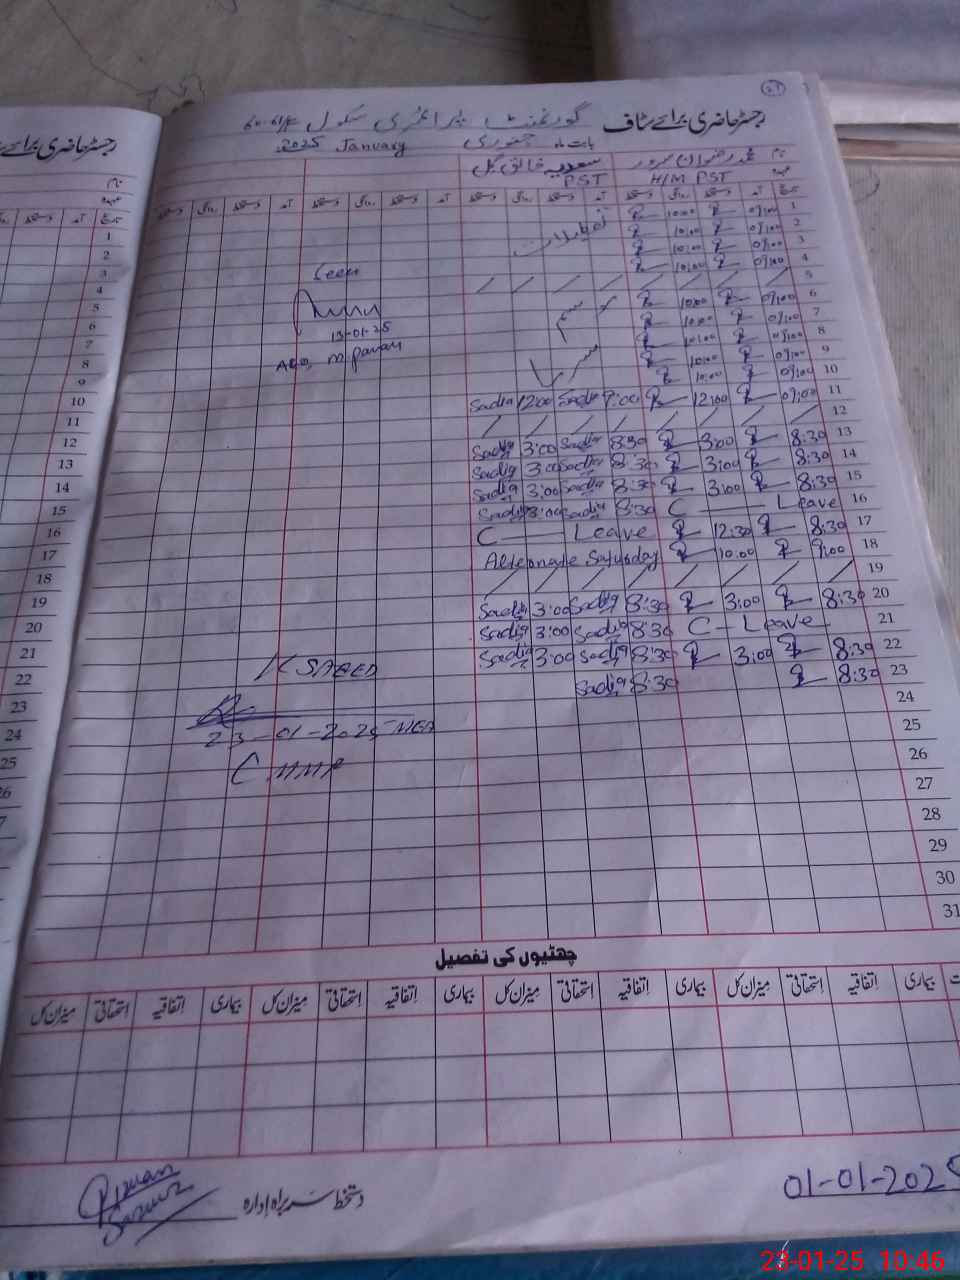 رجسٹر حاضری برائے سٹاف گورنمنٹ پرائمری سکول
بابت ماہ جنوری January 2025
نام محمد رضوان سرور سعدیہ خالق گل
H/M PST PST
تاریخ آمد دستخط روانگی دستخط آمد دستخط روانگی دستخط آمد دستخط روانگی دستخط
1 09:00 10:00 تعطیلات
2 09:00 10:00
3 09:00 10:00
4 09:00 10:00
5 / / / / / / / /
6 09:00 10:00
7 09:00 10:00
8 09:00 10:00
9 09:00 10:00
10 09:00 10:00
11 09:00 12:00 9:00 Sadia 12:00 Sadia
12 / / / / / / / /
13 8:30 3:00 8:30 Sadia 3:00 Sadia
14 8:30 3:00 8:30 Sadia 3:00 Sadia
15 8:30 3:00 8:30 Sadia 3:00 Sadia
16 C — Leave 8:30 Sadia 3:00 Sadia
17 8:30 12:30 C — Leave
18 9:00 10:00 Alternate Saturday
19 / / / / / / / /
20 8:30 3:00 8:30 Sadia 3:00 Sadia
21 C — Leave 8:30 Sadia 3:00 Sadia
22 8:30 3:00 8:30 Sadia 3:00 Sadia
23 8:30 8:30 Sadia
24
25
26
27
28
29
30
31
Seen
13-01-25
AEO,
K SAEED
23-01-2025 MEA
چھٹیوں کی تفصیل
بیماری اتفاقیہ استحقاقی میزان کل بیماری اتفاقیہ استحقاقی میزان کل بیماری اتفاقیہ استحقاقی میزان کل
دستخط سربراہ ادارہ
01-01-2025
23-01-25 10:46
رجسٹر حاضری برائے
نام
تاریخ آمد دستخط روانگی
1
2
3
4
5
6
7
8
9
10
11
12
13
14
15
16
17
18
19
20
21
22
23
24
25
26